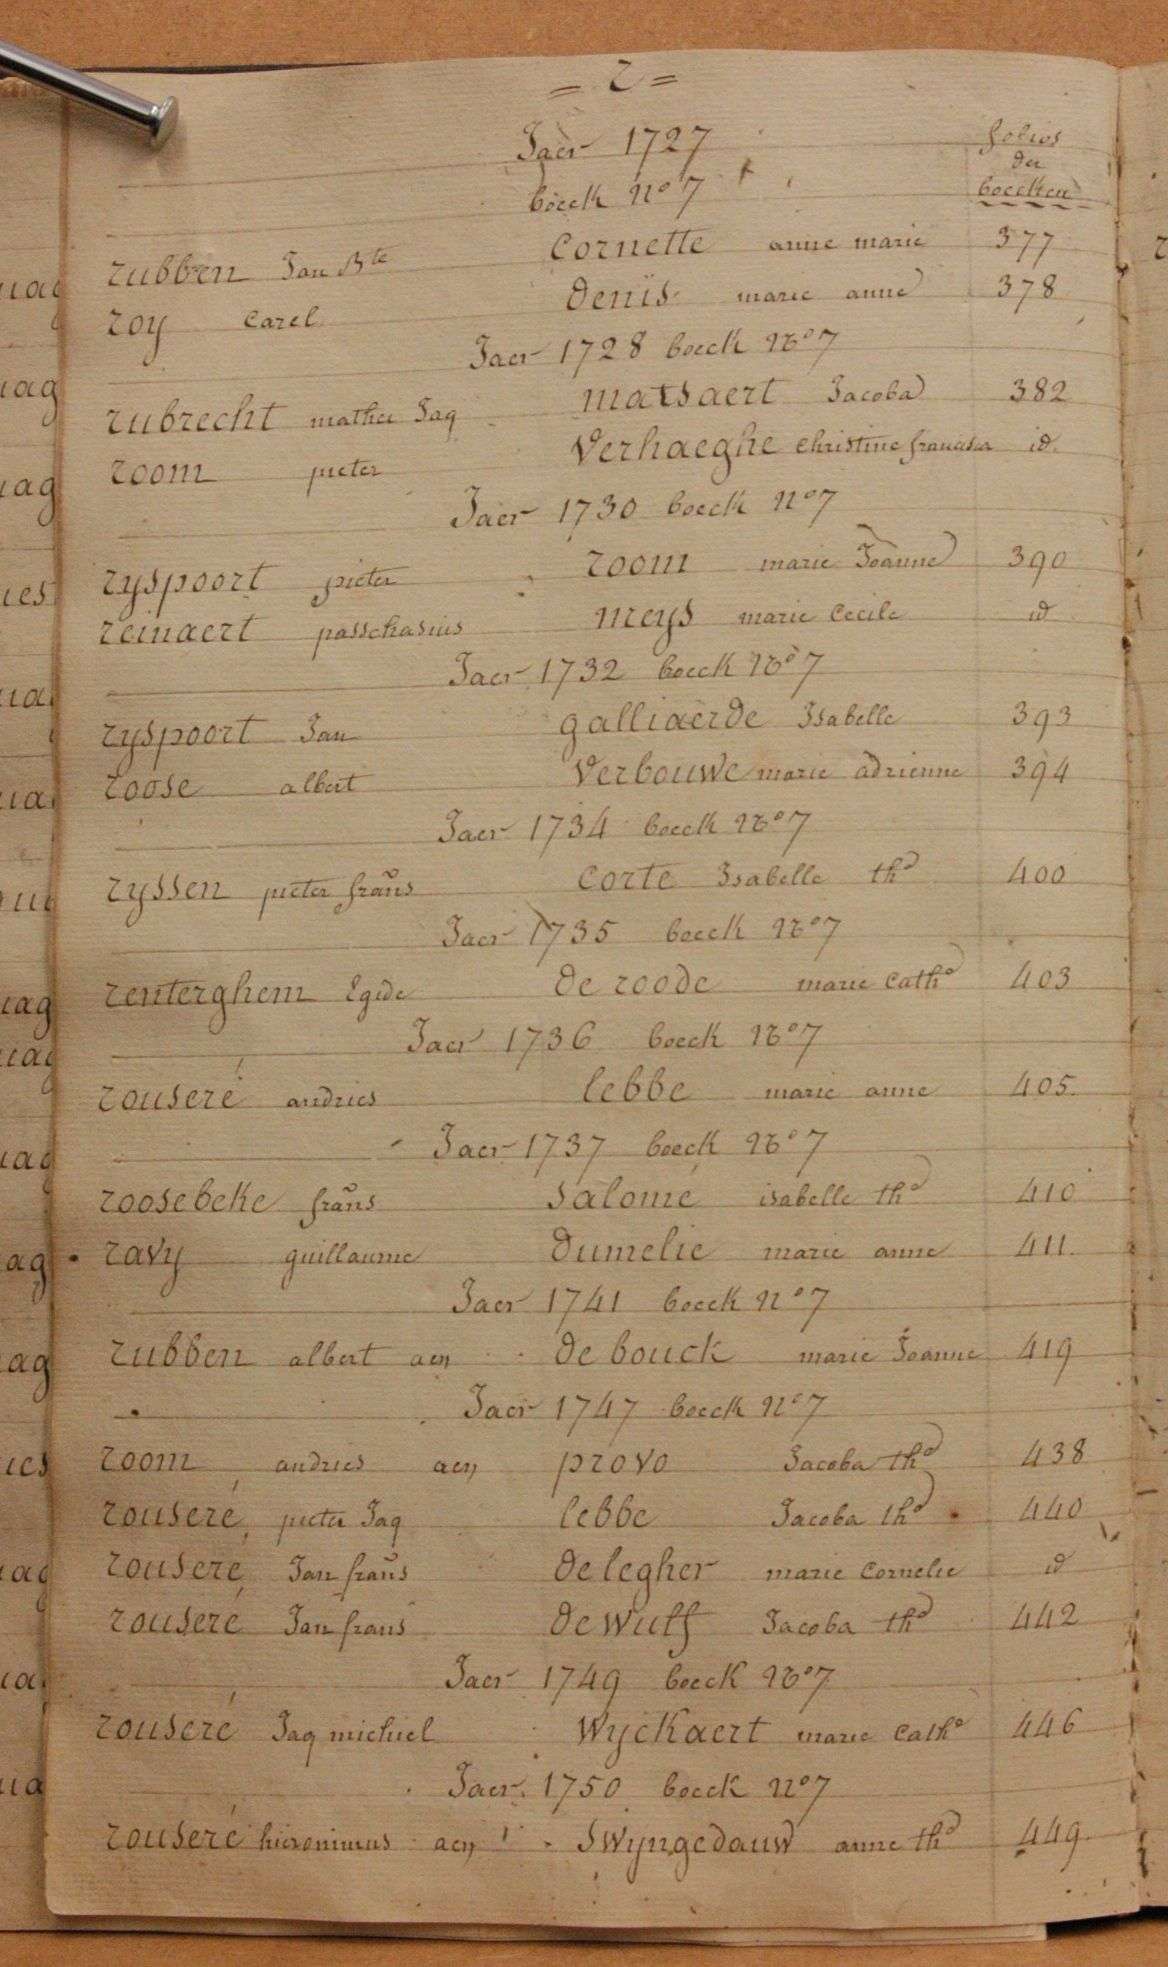 = 2 =
Jaer 1727
folios
der
boecken
boeck No 7
rubben Jan Bte cornette anne marie 377
roy carel denïs marie anne 378
Jaer 1728 boeck No 7
rubrecht mathu Jaq matsaert Jacoba 382
room pieter verhaeghe christine francisca id.
Jaer 1730 boeck No 7
ryspoort pieter room marie Joanne 390
reinaert passchasius meys marie cecile id
Jaer 1732 boeck No 7
ryspoort Jan galliaerde Isabelle 393
roose albert verbouwe marie adrienne 394
Jaer 1734 boeck No 7
ryssen pieter frans corte Isabelle tha 400
Jaer 1735 boeck No 7
renterghem Egide de roode marie catha 403
Jaer 1736 boeck No 7
rouseré andries lebbe marie anne 405
Jaer 1737 boeck No 7
roosebeke frans salomé isabelle tha 410
ravy guillaume dumelie marie anne 411
Jaer 1741 boeck No 7
rubben albert aen de bouck marie Joanne 419
Jaer 1747 boeck No 7
room andries aen provo Jacoba tha 438
rouseré pieter Jaq lebbe Jacoba tha 440
rouseré Jan frans de legher marie cornelie id
rouseré Jan frans de wulf Jacoba tha 442
Jaer 1749 boeck No 7
rouseré Jaq michiel wyckaert marie catha 446
Jaer 1750 boeck No 7
rouseré hieronimus aen swyngedauw anne tha 449